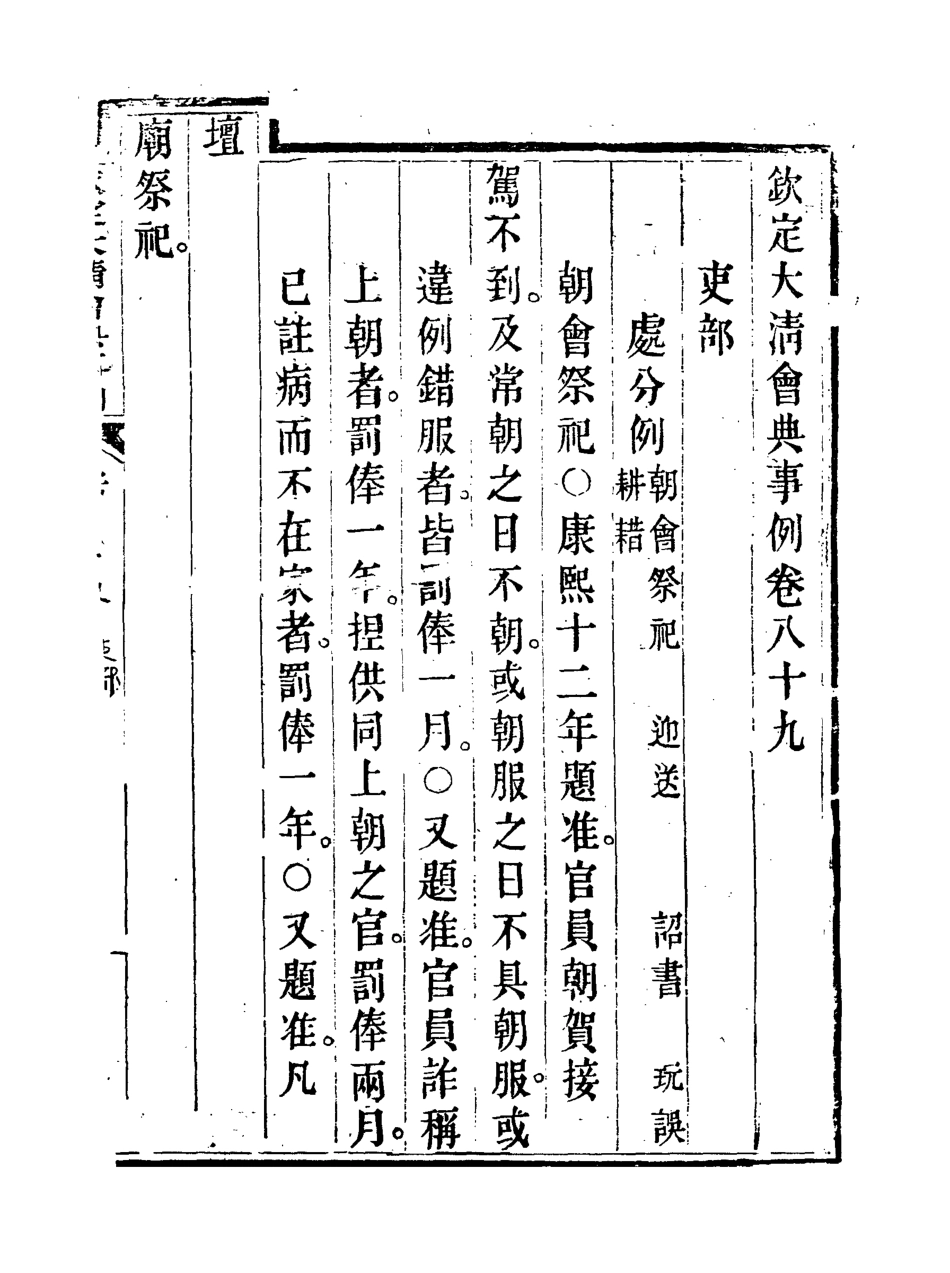 欽定大清會典事例卷八十九
吏部
處分例 朝會祭祀 迎送 詔書 玩誤
耕耤
朝會祭祀○康熙十二年題准。官員朝賀接
駕不到。及常朝之日不朝。或朝服之日不具朝服。或
違例錯服者。皆罰俸一月。○又題准。官員詐稱
上朝者。罰俸一年。捏供同上朝之官。罰俸兩月。
已註病而不在家者。罰俸一年。○又題准。凡
壇
廟祭祀。